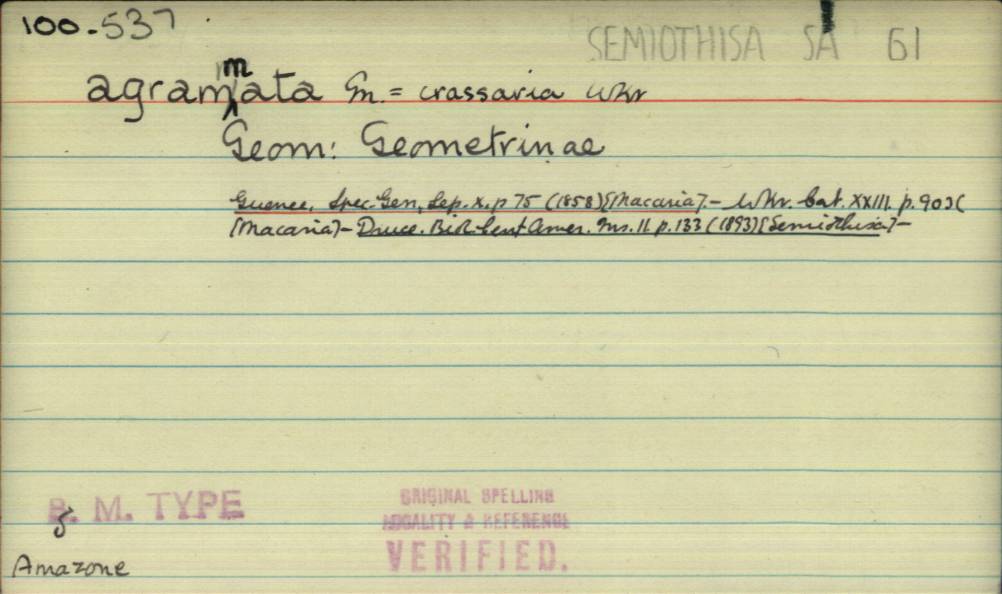 100.537
SEMIOTHISA SA 61
agrammata Gn. = crassaria Wkr
Geom: Geometrinae
Guenee, Spec. Gen. Lep. X, p 75 (1858) [Macaria]. - Wkr. Cat. XXIII. p. 903 (
[Macaria] - Druce. Biol. Cent Amer. Ins. II p. 133 (1893) [Semiothisa] -
B. M. TYPE
ORIGINAL SPELLING
LOCALITY & REFERENCE
VERIFIED.
Amazone